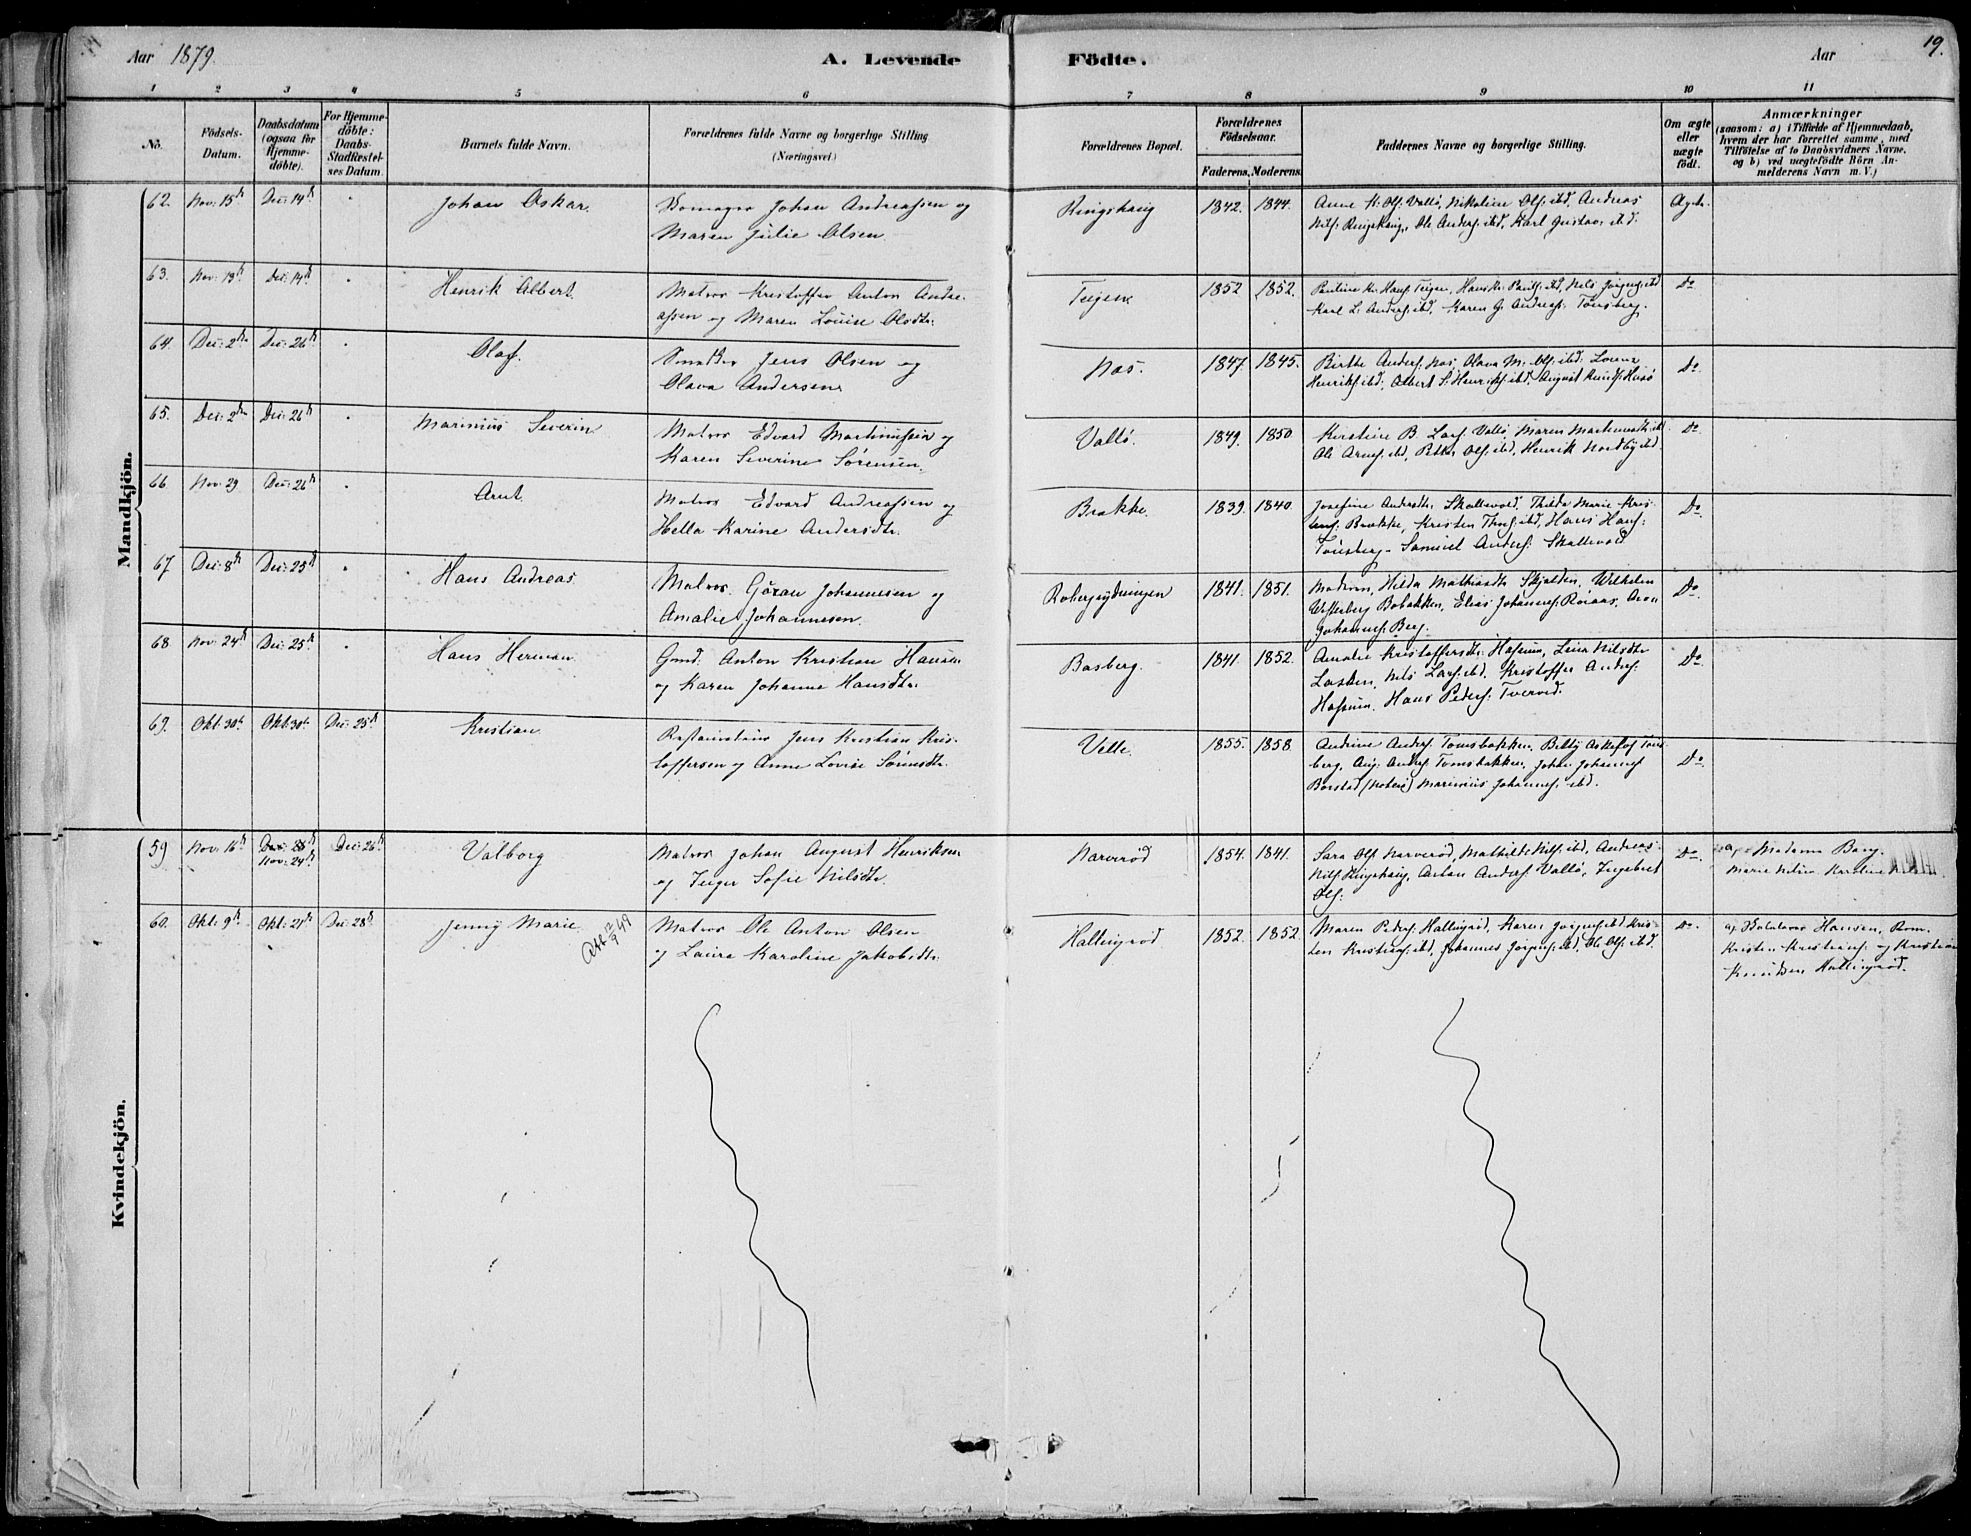 Aar 1879. A. Levende Födte. Aar 19.
1 2 3 4 5 6 7 8 9 10 11
No.
Födsels-
Datum.
Daabsdatum
(ogsaa for
Hjemme-
döbte).
For Hjemme-
döbte:
Daabs-
Stadfæstel-
ses Datum.
Barnets fulde Navn.
Forældrenes fulde Navne og borgerlige Stilling
(Næringsvei.)
Forældrenes Bopæl.
Forældrenes
Födselsaar.
Faderens. Moderens.
Faddernes Navne og borgerlige Stilling.
Om ægte
eller
uægte
födt.
Anmærkninger
(saasom: a) i Tilfælde af Hjemmedaab,
hvem der har forrettet samme, med
Tilföielse af to Daabsvidners Navne,
og b) ved uægtefödte Börn An-
melderens Navn m. V.)
Mandkjön.
62. Nov: 15de Dec: 14de Johan Oskar.
Johan Andreassen og
Maren Julie Olsen
Ringshaug 1842. 1844.
Anne K. Ols: Vallö, Nikoline Ols: ibd, Andreas
Nils: Ringshaug, Ole Anders: ibd, Karl Gustav: ibd.
Ægte.
63. Nov: 19de Dec: 14de Henrik Albert
Matros Kristoffer Anton Andre-
assen og Maren Louise Olsdtr.
Teigen 1852 1852.
Karl L. Anders: ibd, Karen G. Andreas: Tönsberg.
Do
64. Dec: 2den Dec: 26de Olaf.
Jens Olsen og
Olava Andersen
Nes. 1847. 1845.
Birthe Anders: Nes, Olava M. Ols: ibd: Lorens
Henriks: ibd, Albert S. Henriks: ibd, August Knuds: Husö
Do
65. Dec: 2den Dec: 26de Marinius Severin
Matros Edvard Martinussen og
Karen Severine Sørensen.
Vallö. 1849. 1850.
Kirstine B. Lars: Vallö, Maren
Ole Arnes: ibd, Ols: ibd, Henrik Nordby ibd.
Do
66 Nov: 29 Dec: 26de Arnt
Matros Edvard Andreassen og
Hella Karine Andersdtr.
Brække. 1839. 1840.
Josefine Andersdtr: Skallevold, Thilda Marie Kris-
tens: Brække, Kristen Thors: ibd, Hans Hans:
Tönsberg - Samuel Anders: Skallevold
Do
67 Dec: 8de Dec: 25de Hans Andreas
Matros Göran Johannesen og
Amalie Johannesen.
1841. 1851.
Madam Hilda Mathiasdtr Skjelden, Wilhelm
Vesterberg Bobakken, Elias Johannes: Röraas, Aron
Johannes: Berg.
Do
68 Nov: 24de Dec: 25de Hans Herman
Gmd. Anton Kristian Hansen
og Karen Johanne Hansdtr.
Basberg. 1841. 1852.
Amalie Kristoffersdtr: Hassum, Nilsdtr
Nils Lars: ibd, Kristoffer Anders:
Hassum, Hans Peders: Tverved.
Do
69. Okt: 30te Okt: 30te Dec: 25de Kristian
Jens Kristian Kris-
toffersen og Anne Lovise Sörensdtr.
Velle. 1855. 1858.
Andrine Anders: Tomsbakken, Betty Töns-
berg, Aug: Anders: Tomsbakken, Johan Johannes:
Borstad (Nöterö) Marinius Johannes: ibd.
Do
Kvindekjön.
59 Nov: 16de Nov: 24de Dec: 26de Valborg
Matros Johan August Henriksen
og Inger Sofie Nilsdtr.
Narveröd 1854. 1841.
Sara Ols: Narveröd, Mathilde Nils: ibd, Andreas
Nils: Ringshaug, Anton Anders: Vallö, Ingebret
Ols:
Do
a, Madame Berg.
60. Okt: 9de Okt: 21de Dec: 28de Jenny Marie
Att 12/9 49
Matros Ole Anton Olsen
og Laura Karoline Jakobsdtr.
Hallingröd 1852. 1852
Maren Peders: Hallingröd, Karen Jörgens: ibd, Kris-
ten Kristians: ibd, Johannes Jörgens: ibd, Ole Ols: ibd.
Do
Hansen, Rom.
Kristen Kristians: og Kristian
Knudsen Hallingröd.